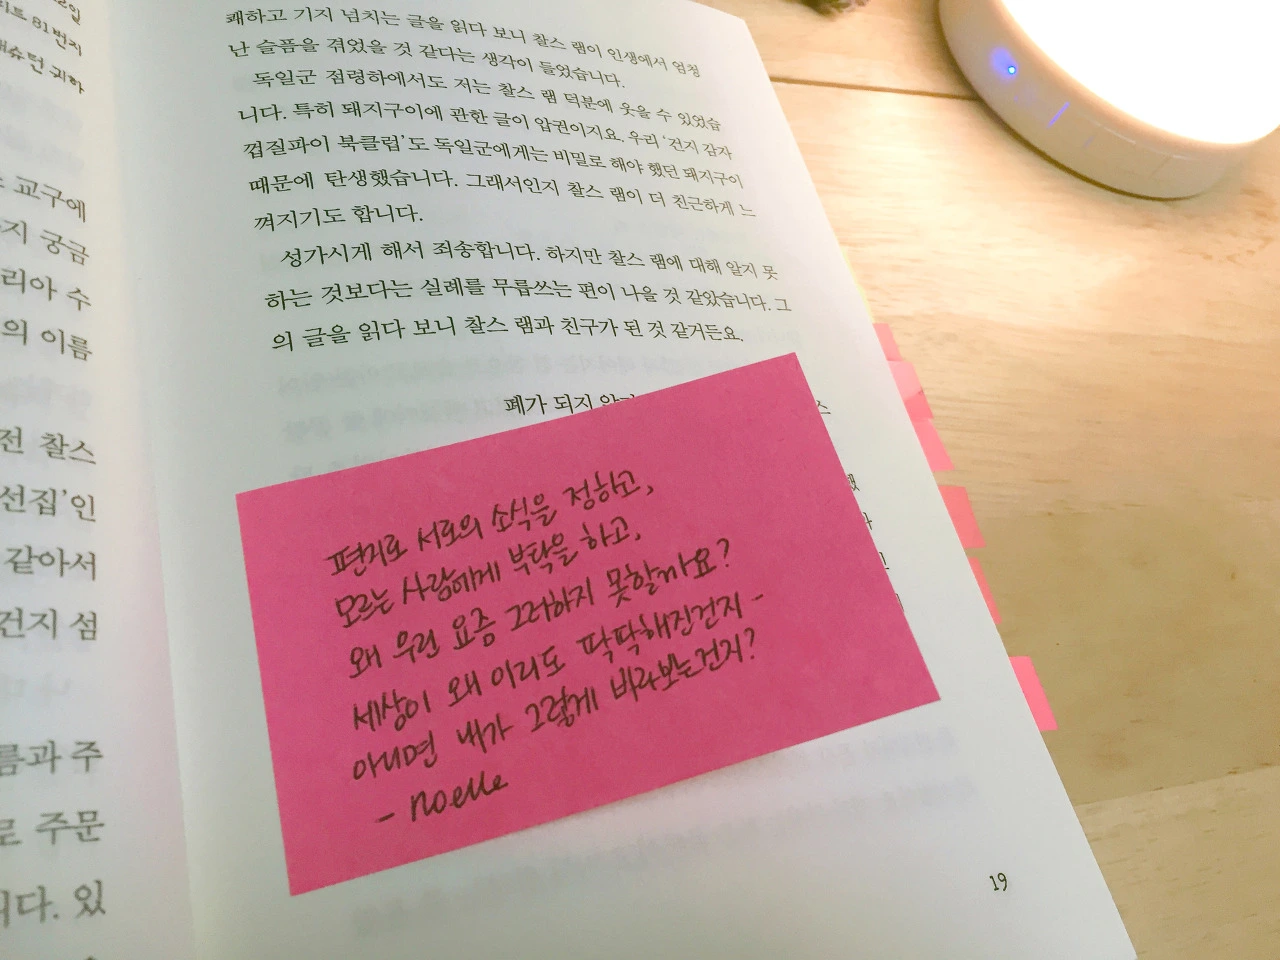 2일
81번지
귀하
교구에
지 궁금
리아 수
의 이름
전 찰스
선집'인
같아서
건지 섬
름과 주
로 주문
니다. 있
쾌하고 기지 넘치는 글을 읽다 보니 찰스 램이 인생에서 엄청
난 슬픔을 겪었을 것 같다는 생각이 들었습니다.
독일군 점령하에서도 저는 찰스 램 덕분에 웃을 수 있었습
니다. 특히 돼지구이에 관한 글이 압권이지요. 우리 '건지 감자
껍질파이 북클럽'도 독일군에게는 비밀로 해야 했던 돼지구이
때문에 탄생했습니다. 그래서인지 찰스 램이 더 친근하게 느
껴지기도 합니다.
성가시게 해서 죄송합니다. 하지만 찰스 램에 대해 알지 못
하는 것보다는 실례를 무릅쓰는 편이 나을 것 같았습니다. 그
의 글을 읽다 보니 찰스 램과 친구가 된 것 같거든요.
폐가 되지
편지로 서로의 소식을 정하고,
모르는 사람에게 부탁을 하고,
왜 우린 요즘 그러하지 못할까요?
세상이 왜 이리도 딱딱해진건지 -
아니면 내가 그렇게 바라보는건지?
- noelle
19